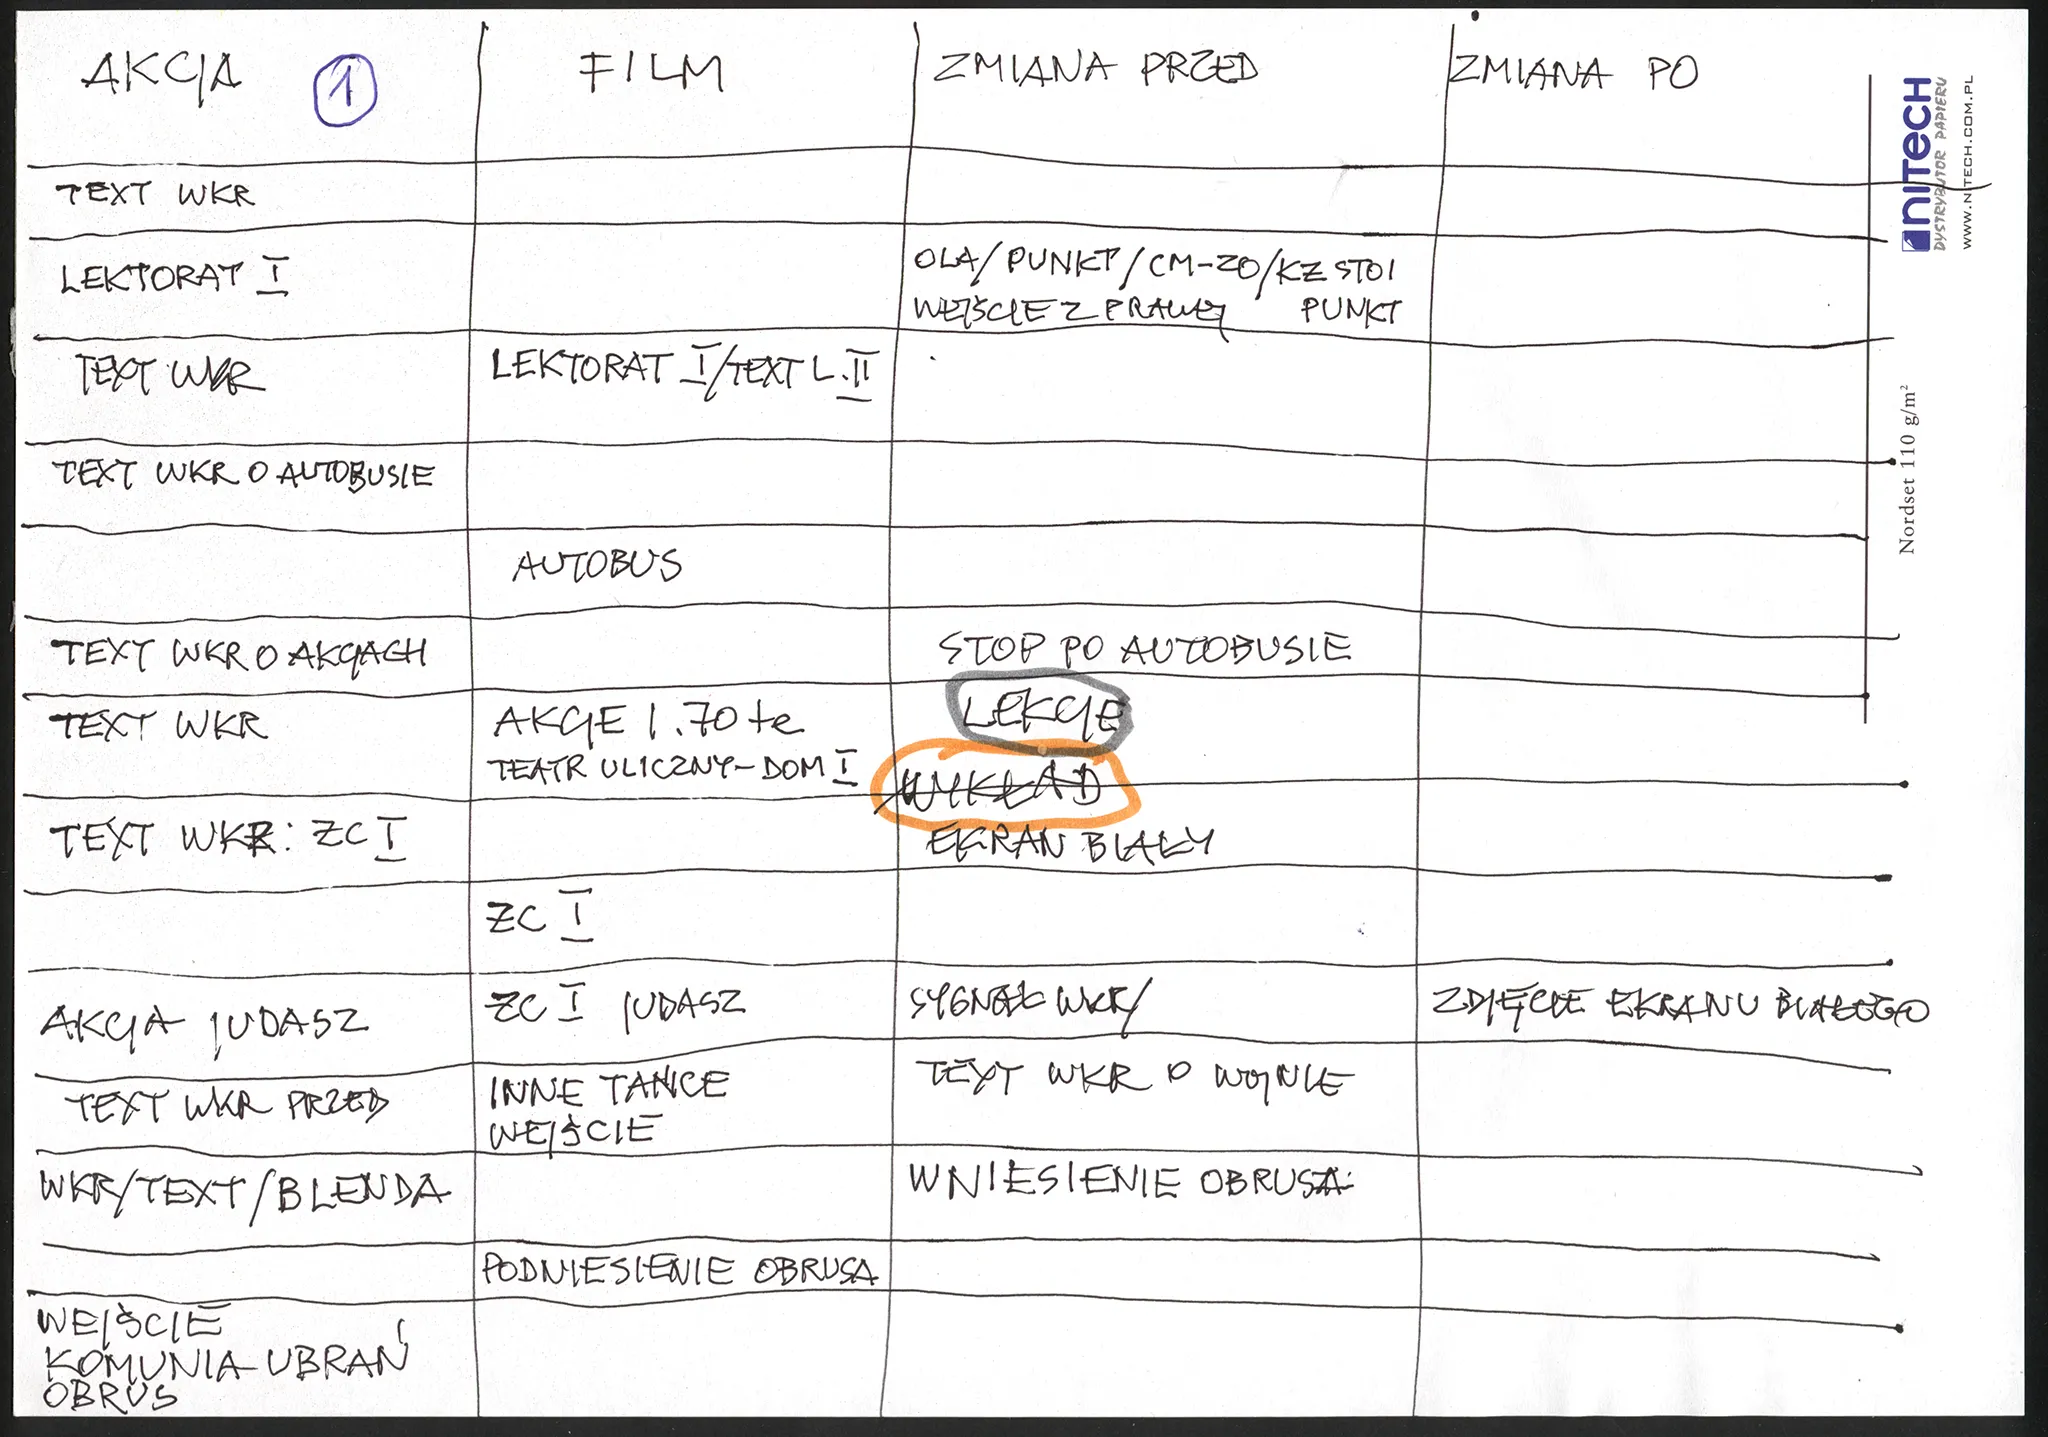 AKCJA 1 FILM ZMIANA PRZED ZMIANA PO
TEXT WKR
LEKTORAT I OLA/PUNKT/CM-ZO/KZ STOI
WEJŚCIE Z PRAWEJ PUNKT
TEXT WKR LEKTORAT I/TEXT L.II
TEXT WKR O AUTOBUSIE
AUTOBUS
TEXT WKR O AKCJACH STOP PO AUTOBUSIE
TEXT WKR AKCJE l.70te LEKCJE
TEATR ULICZNY-DOM I WYKŁAD
TEXT WKR: ŻC I EKRAN BIAŁY
ŻC I
AKCJA JUDASZ ŻC I JUDASZ SYGNAŁ WKR/ ZDJĘCIE EKRANU BIAŁEGO
TEXT WKR PRZED INNE TAŃCE TEXT WKR O WOJNIE
WEJŚCIE
WKR/TEXT/BLENDA WNIESIENIE OBRUSA
PODNIESIENIE OBRUSA
WEJŚCIE
KOMUNIA UBRAŃ
OBRUS
NITECH
DYSTRYBUTOR PAPIERU
WWW.NITECH.COM.PL
Nordset 110 g/m²